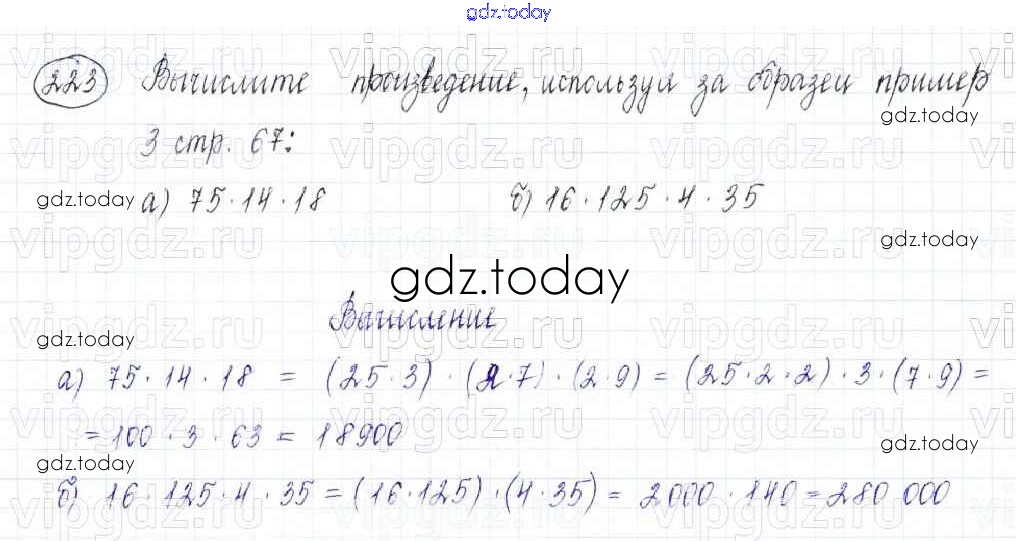 gdz.today
223 Вычислите произведение, используя за образец пример
gdz.today
3 стр. 67:
vipgdz.ru
gdz.today а) 75·14·18 б) 16·125·4·35
gdz.today
gdz.today
Вычисление
gdz.today
а) 75·14·18 = (25·3)·(2·7)·(2·9) = (25·2·2)·3·(7·9) =
= 100·3·63 = 18900
gdz.today
gdz.today
б) 16·125·4·35 = (16·125)·(4·35) = 2000·140 = 280 000